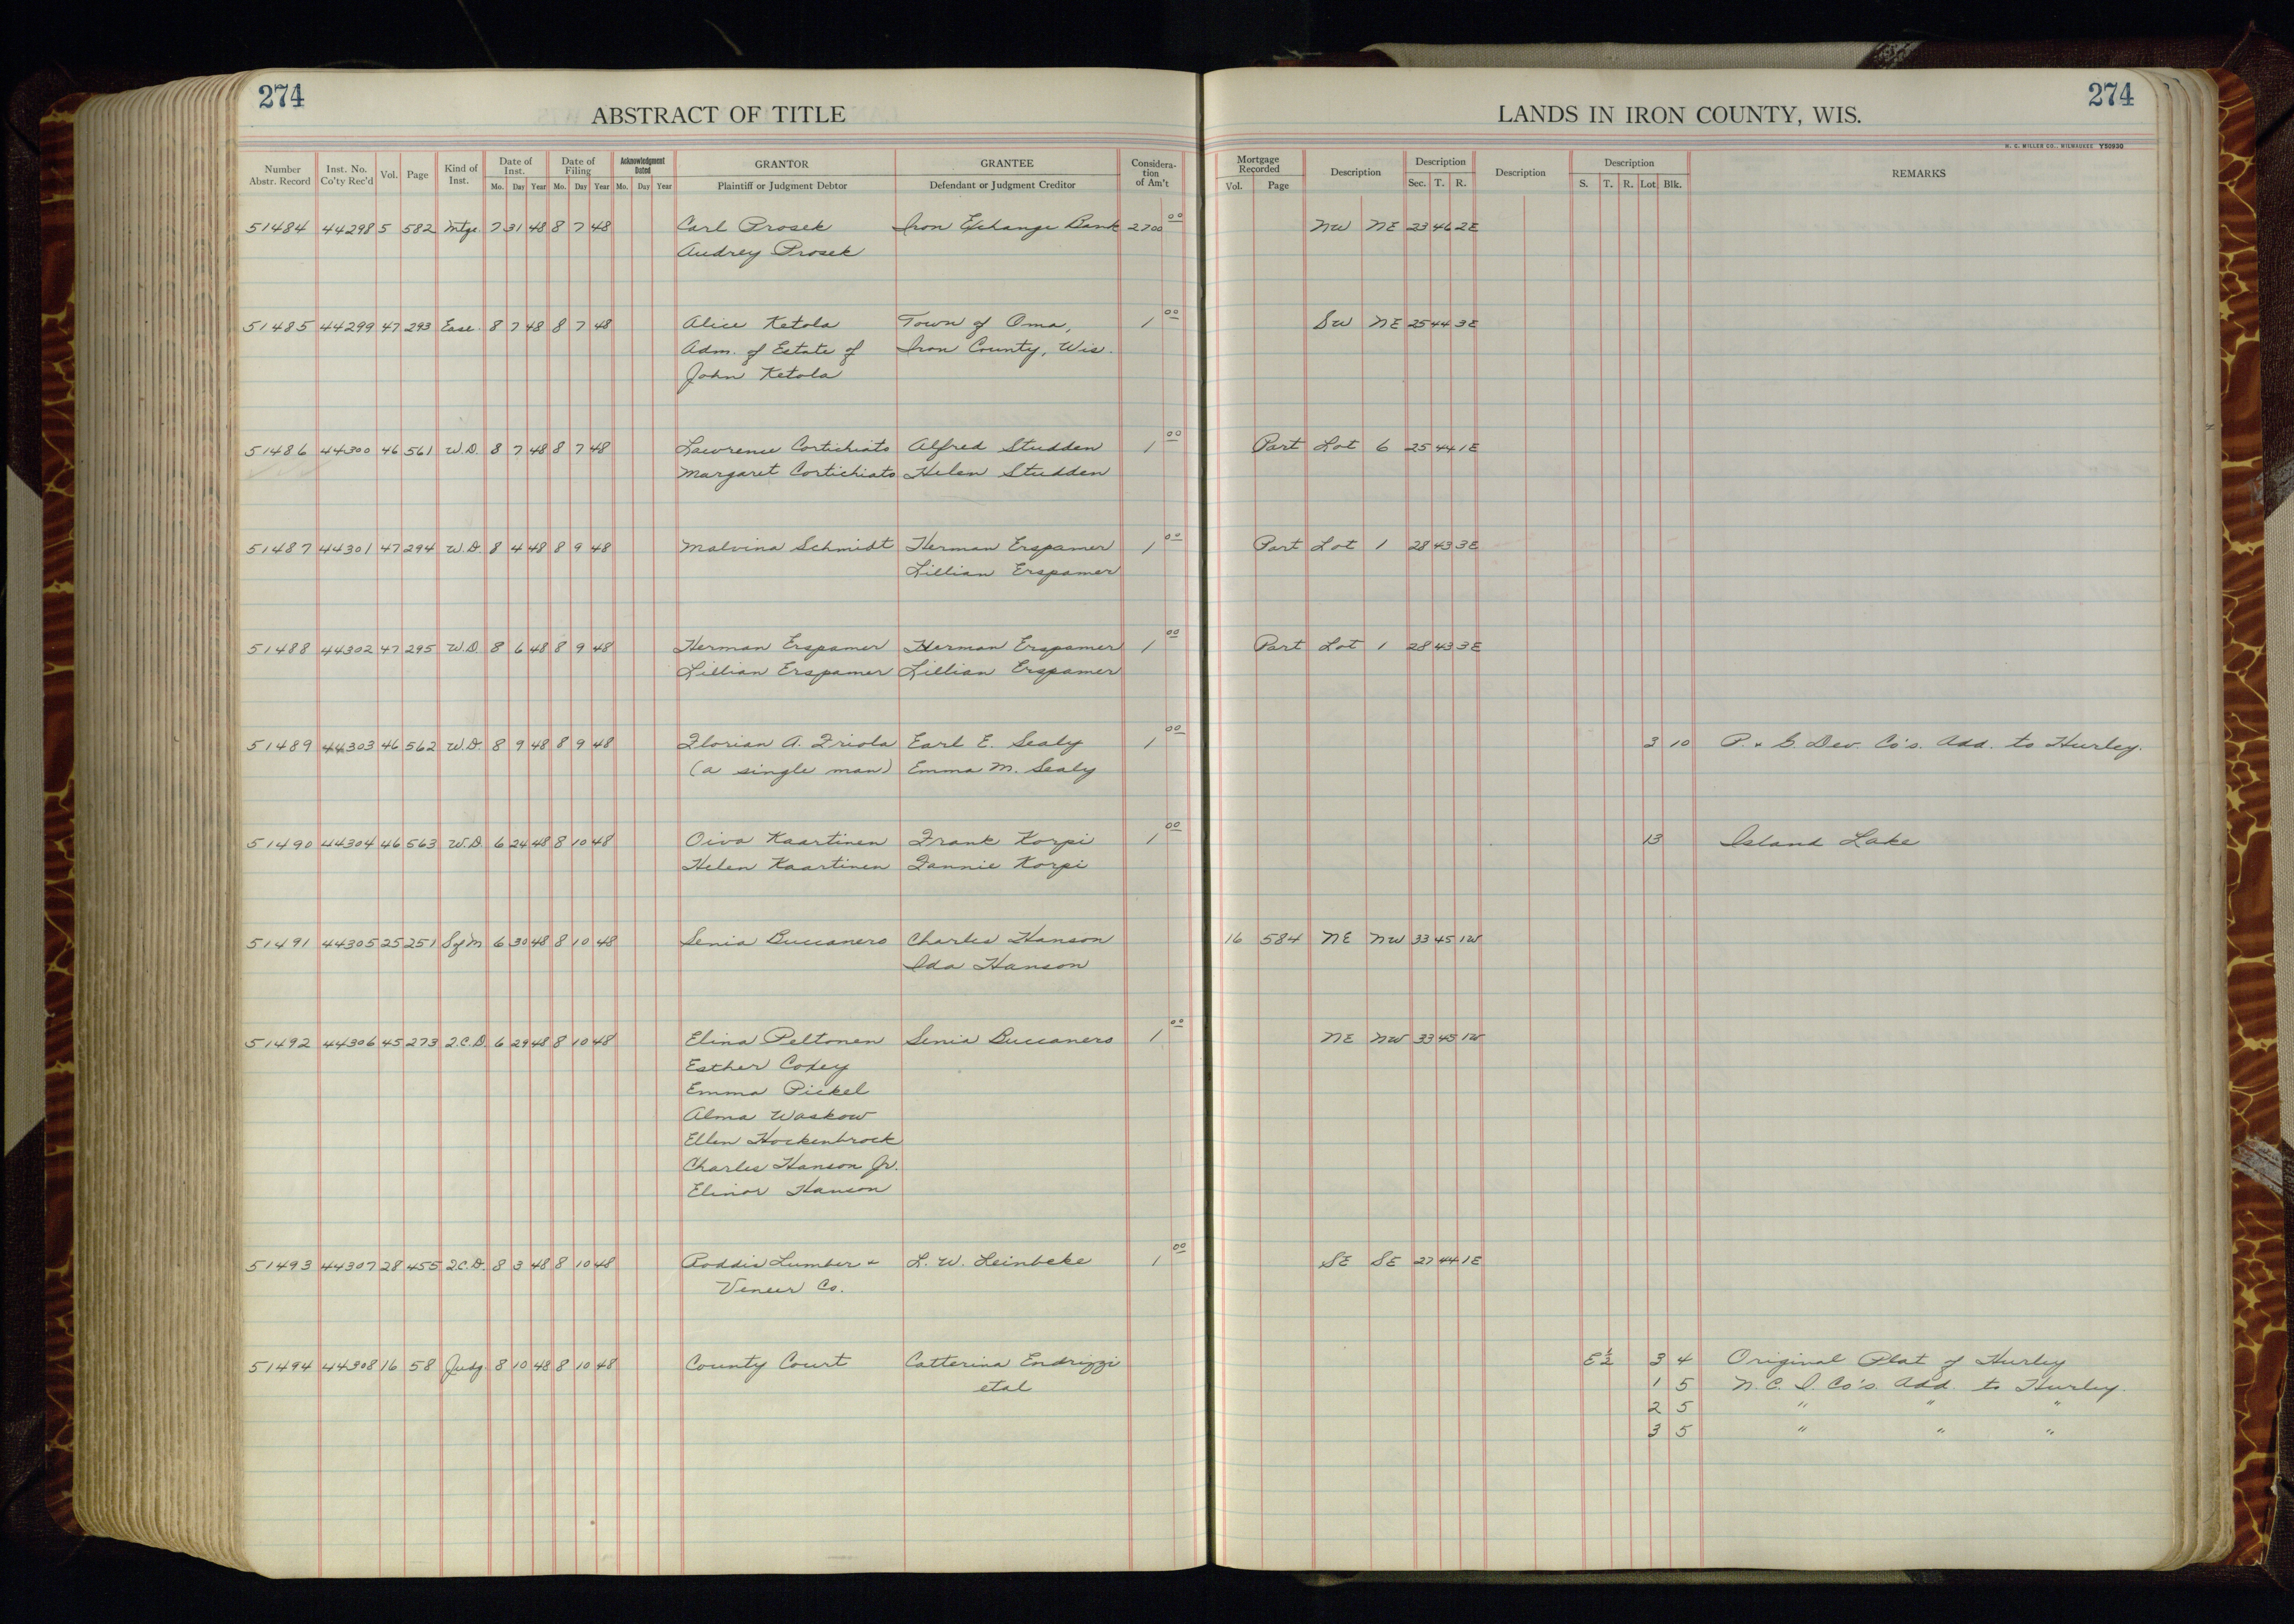 274
ABSTRACT OF TITLE
LANDS IN IRON COUNTY, WIS.
274
H. C. MILLER CO., MILWAUKEE Y50930
Number Abstr. Record Inst. No. Co'ty Rec'd Vol. Page Kind of Inst. Date of Inst. Mo. Day Year Date of Filing Mo. Day Year Acknowledgment Dated Mo. Day Year GRANTOR Plaintiff or Judgment Debtor GRANTEE Defendant or Judgment Creditor Considera-tion of Am't Mortgage Recorded Vol. Page Description Description Sec. T. R. Description Description S. T. R. Lot Blk. REMARKS
51484 44298 5 582 Mtge. 7 31 48 8 7 48 Carl Prosek Iron Exchange Bank 2700 00 NW NE 23 46 2E
Audrey Prosek
51485 44299 47 293 Ease. 8 7 48 8 7 48 Alice Ketola Town of Oma, 1 00 SW NE 25 44 3E
Adm. of Estate of Iron County, Wis.
John Ketola
51486 44300 46 561 W.D. 8 7 48 8 7 48 Lawrence Cortichiato Alfred Studden 1 00 Part Lot 6 25 44 1E
Margaret Cortichiato Helen Studden
51487 44301 47 294 W.D. 8 4 48 8 9 48 Malvina Schmidt Herman Erspamer 1 00 Part Lot 1 28 43 3E
Lillian Erspamer
51488 44302 47 295 W.D. 8 6 48 8 9 48 Herman Erspamer Herman Erspamer 1 00 Part Lot 1 28 43 3E
Lillian Erspamer Lillian Erspamer
51489 44303 46 562 W.D. 8 9 48 8 9 48 Florian A. Friola Earl E. Sealy 1 00 3 10 P. & G. Dev. Co's. Add. to Hurley.
(a single man) Emma M. Sealy
51490 44304 46 563 W.D. 6 24 48 8 10 48 Oiva Kaartinen Frank Korpi 1 00 13 Island Lake
Helen Kaartinen Fannie Korpi
51491 44305 25 251 6 30 48 8 10 48 Senia Buccanero Charles Hanson 16 584 NE NW 33 45 1W
Ida Hanson
51492 44306 45 273 Q.C.D. 6 29 48 8 10 48 Elina Peltonen Senia Buccanero 1 00 NE NW 33 45 1W
Esther Codey
Emma Pickel
Alma Waskow
Ellen Hockenbrock
Charles Hanson Jr.
Elinor Hanson
51493 44307 28 455 Q.C.D. 8 3 48 8 10 48 Roddis Lumber & L. W. Leinbeke 1 00 SE SE 27 44 1E
Veneer Co.
51494 44308 16 58 Judg. 8 10 48 8 10 48 County Court Catterina Endrizzi E½ 3 4 Original Plat of Hurley
etal 1 5 N. C. I. Co's. Add. to Hurley.
2 5 " " "
3 5 " " "